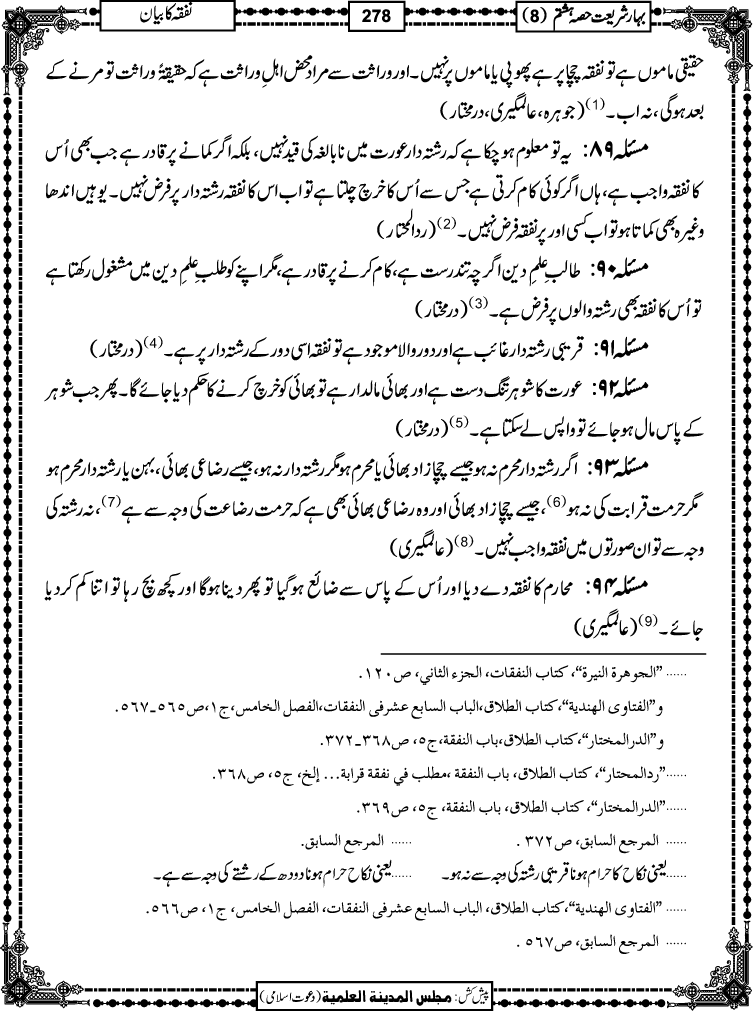 بہار شریعت حصہ ہشتم (8)
278
نفقہ کا بیان
حقیقی ماموں ہے تو نفقہ چچا پر ہے پھوپی یا ماموں پر نہیں۔ اور وراثت سے مراد محض اہلِ وراثت ہے کہ حقیقۃً وراثت تو مرنے کے
بعد ہوگی، نہ اب۔(1) (جوہرہ، عالمگیری، درمختار)
مسئلہ ۸۹: یہ تو معلوم ہو چکا ہے کہ رشتہ دار عورت میں نابالغہ کی قید نہیں، بلکہ اگر کمانے پر قادر ہے جب بھی اُس
کا نفقہ واجب ہے، ہاں اگر کوئی کام کرتی ہے جس سے اُس کا خرچ چلتا ہے تو اب اس کا نفقہ رشتہ دار پر فرض نہیں۔ یوہیں اندھا
وغیرہ بھی کماتا ہو تو اب کسی اور پر نفقہ فرض نہیں۔(2) (ردالمحتار)
مسئلہ ۹۰: طالبِ علمِ دین اگرچہ تندرست ہے، کام کرنے پر قادر ہے، مگر اپنے کو طلبِ علمِ دین میں مشغول رکھتا ہے
تو اُس کا نفقہ بھی رشتہ والوں پر فرض ہے۔(3) (درمختار)
مسئلہ ۹۱: قریبی رشتہ دار غائب ہے اور دور والا موجود ہے تو نفقہ اسی دور کے رشتہ دار پر ہے۔(4) (درمختار)
مسئلہ ۹۲: عورت کا شوہر تنگ دست ہے اور بھائی مالدار ہے تو بھائی کو خرچ کرنے کا حکم دیا جائے گا۔ پھر جب شوہر
کے پاس مال ہو جائے تو واپس لے سکتا ہے۔(5) (درمختار)
مسئلہ ۹۳: اگر رشتہ دار محرم نہ ہو جیسے چچا زاد بھائی یا محرم ہو مگر رشتہ دار نہ ہو، جیسے رضاعی بھائی، بہن یا رشتہ دار محرم ہو
مگر حرمت قرابت کی نہ ہو(6)، جیسے چچا زاد بھائی اور وہ رضاعی بھائی بھی ہے کہ حرمت رضاعت کی وجہ سے ہے(7)، نہ رشتہ کی
وجہ سے تو ان صورتوں میں نفقہ واجب نہیں۔(8) (عالمگیری)
مسئلہ ۹۴: محارم کا نفقہ دے دیا اور اُس کے پاس سے ضائع ہو گیا تو پھر دینا ہوگا اور کچھ بچ رہا تو اتنا کم کر دیا
جائے۔(9) (عالمگیری)
......”الجوهرة النيرة“، كتاب النفقات، الجزء الثاني، ص١٢٠.
و”الفتاوى الهندية“،كتاب الطلاق،الباب السابع عشرفى النفقات،الفصل الخامس،ج١،ص٥٦٥-٥٦٧.
و”الدرالمختار“،كتاب الطلاق،باب النفقة،ج٥، ص٣٦٨-٣٧٢.
......”ردالمحتار“، كتاب الطلاق، باب النفقة ،مطلب في نفقة قرابة... إلخ، ج٥، ص٣٦٨.
......”الدرالمختار“، كتاب الطلاق، باب النفقة، ج٥، ص٣٦٩.
...... المرجع السابق، ص٣٧٢ . ...... المرجع السابق.
......یعنی نکاح کا حرام ہونا قریبی رشتہ کی وجہ سے نہ ہو۔ ......یعنی نکاح حرام ہونا دودھ کے رشتے کی وجہ سے ہے۔
...... ”الفتاوى الهندية“،كتاب الطلاق، الباب السابع عشرفى النفقات، الفصل الخامس، ج١، ص٥٦٦.
...... المرجع السابق، ص٥٦٧ .
پیش کش: مجلس المدينة العلمية (دعوت اسلامی)